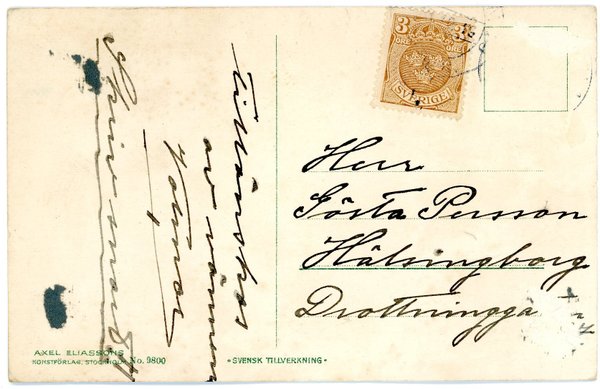 Tillönskas
av vännen
Valmar
Skriv snart!
3 3
ÖRE ÖRE
SVERIGE
Herr
Gösta Persson
Hälsingborg
Drottningga
AXEL ELIASSONS
KONSTFÖRLAG, STOCKHOLM No. 9800
-SVENSK TILLVERKNING-